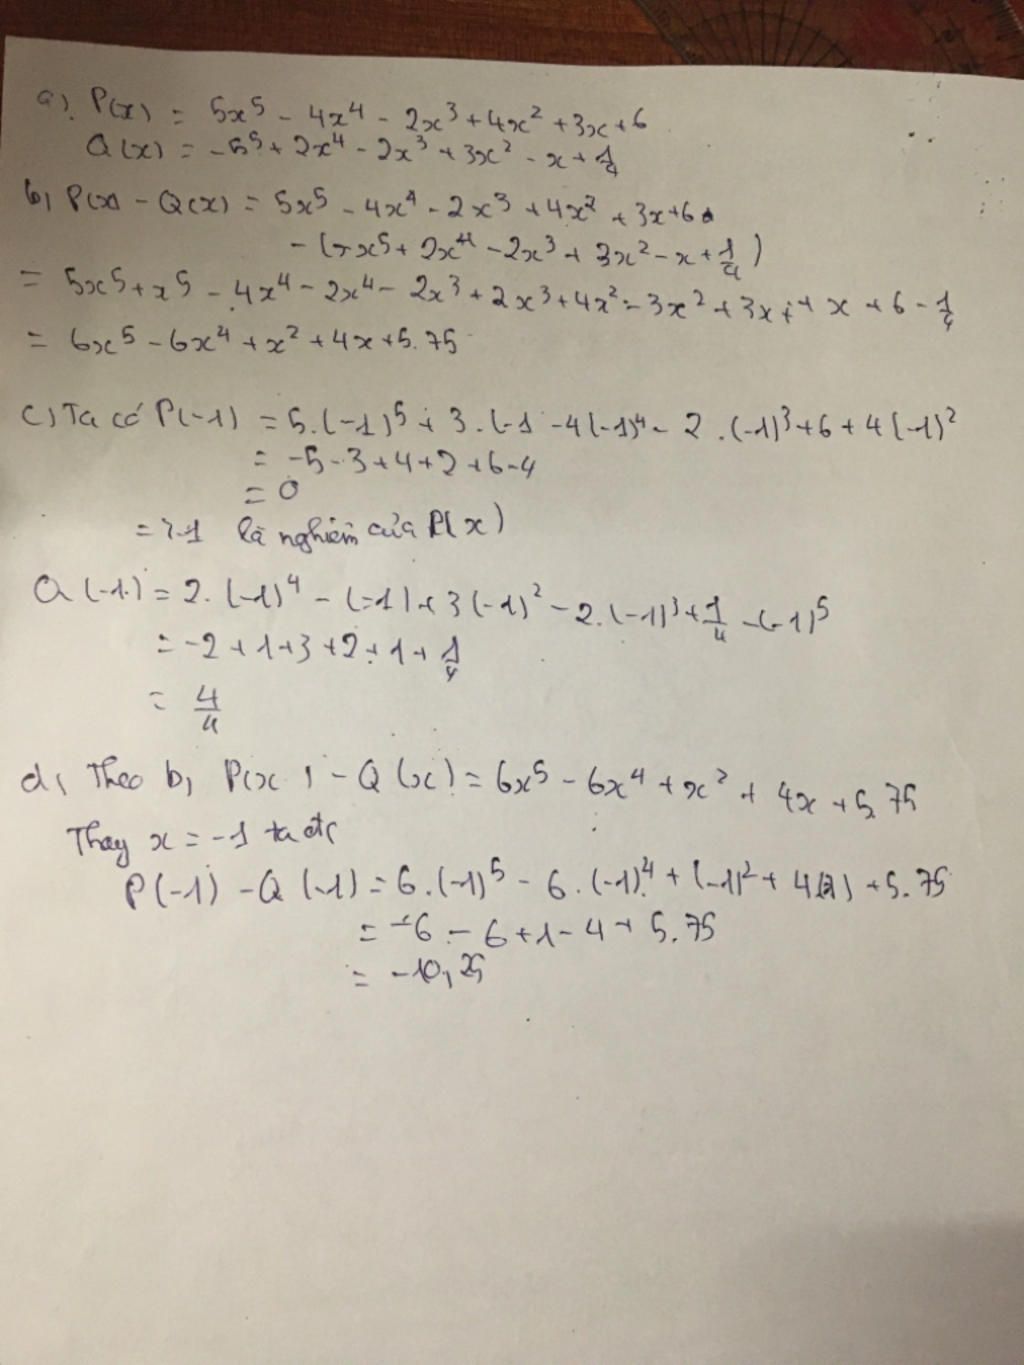 a). P(x) = 5x⁵ - 4x⁴ - 2x³ + 4x² + 3x + 6
Q(x) = -5⁵ + 2x⁴ - 2x³ + 3x² - x + 1/4
b, P(x) - Q(x) = 5x⁵ - 4x⁴ - 2x³ + 4x² + 3x + 6
- (-x⁵ + 2x⁴ - 2x³ + 3x² - x + 1/4)
= 5x⁵ + x⁵ - 4x⁴ - 2x⁴ - 2x³ + 2x³ + 4x² - 3x² + 3x + x + 6 - 1/4
= 6x⁵ - 6x⁴ + x² + 4x + 5.75
c) Ta có P(-1) = 5.(-1)⁵ + 3.(-1 - 4(-1)⁴ - 2.(-1)³ + 6 + 4(-1)²
= -5 - 3 + 4 + 2 + 6 - 4
= 0
=> -1 là nghiệm của P(x)
Q(-1) = 2.(-1)⁴ - (-1) + 3(-1)² - 2.(-1)³ + 1/4 - (-1)⁵
= -2 + 1 + 3 + 2 + 1 + 1/4
= 4/4
d, Theo b, P(x) - Q(x) = 6x⁵ - 6x⁴ + x² + 4x + 5,75
Thay x = -1 ta đc
P(-1) - Q(-1) = 6.(-1)⁵ - 6.(-1)⁴ + (-1)² + 4() + 5.75
= -6 - 6 + 1 - 4 + 5.75
= -10,25